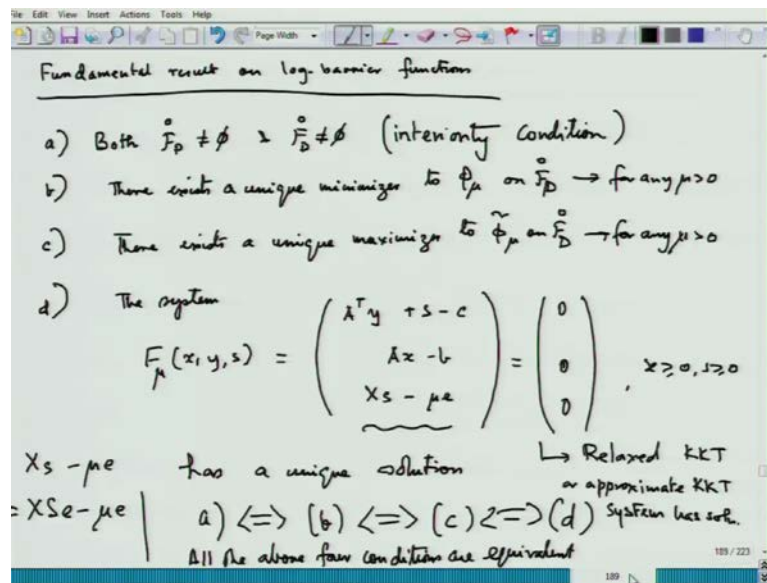 File Edit View Insert Actions Tools Help
Page Width
B I
Fundamental result on log-barrier function
a) Both F̊_P ≠ ϕ & F̊_D ≠ ϕ (interiority condition)
b) There exists a unique minimizer to ϕ_μ on F̊_P → for any μ>0
c) There exists a unique maximizer to ϕ̃_μ on F̊_D → for any μ>0
d) The system
F_μ(x,y,s) = ( Aᵀy + s - c ; Ax - b ; Xs - μe ) = ( 0 ; 0 ; 0 ), x ≥ 0, s ≥ 0
Xs - μe has a unique solution ↳ Relaxed KKT
or approximate KKT
= XSe - μe | a) <=> (b) <=> (c) <=> (d) system has soln.
All the above four conditions are equivalent
189 / 223
189